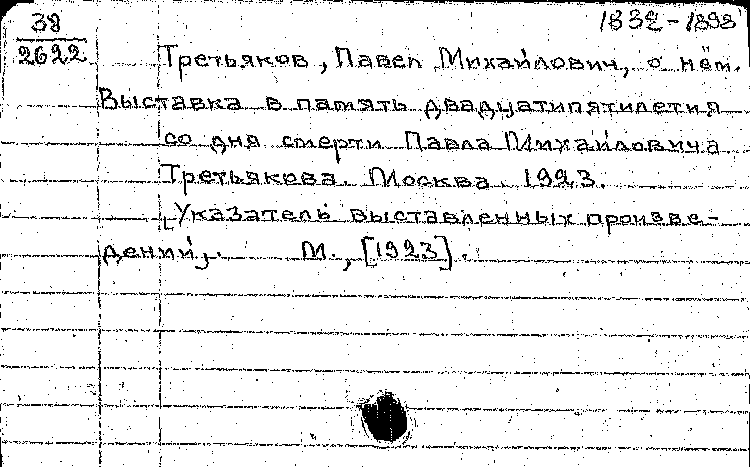 38 1832-1898
2622 Третьяков, Павел Михайлович, о нём.
Выставка в память двадцатипятилетия
со дня смерти Павла Михайловича
Третьякова. Москва. 1923.
[Указатель выставленных произве-
дений,. М., [1923].